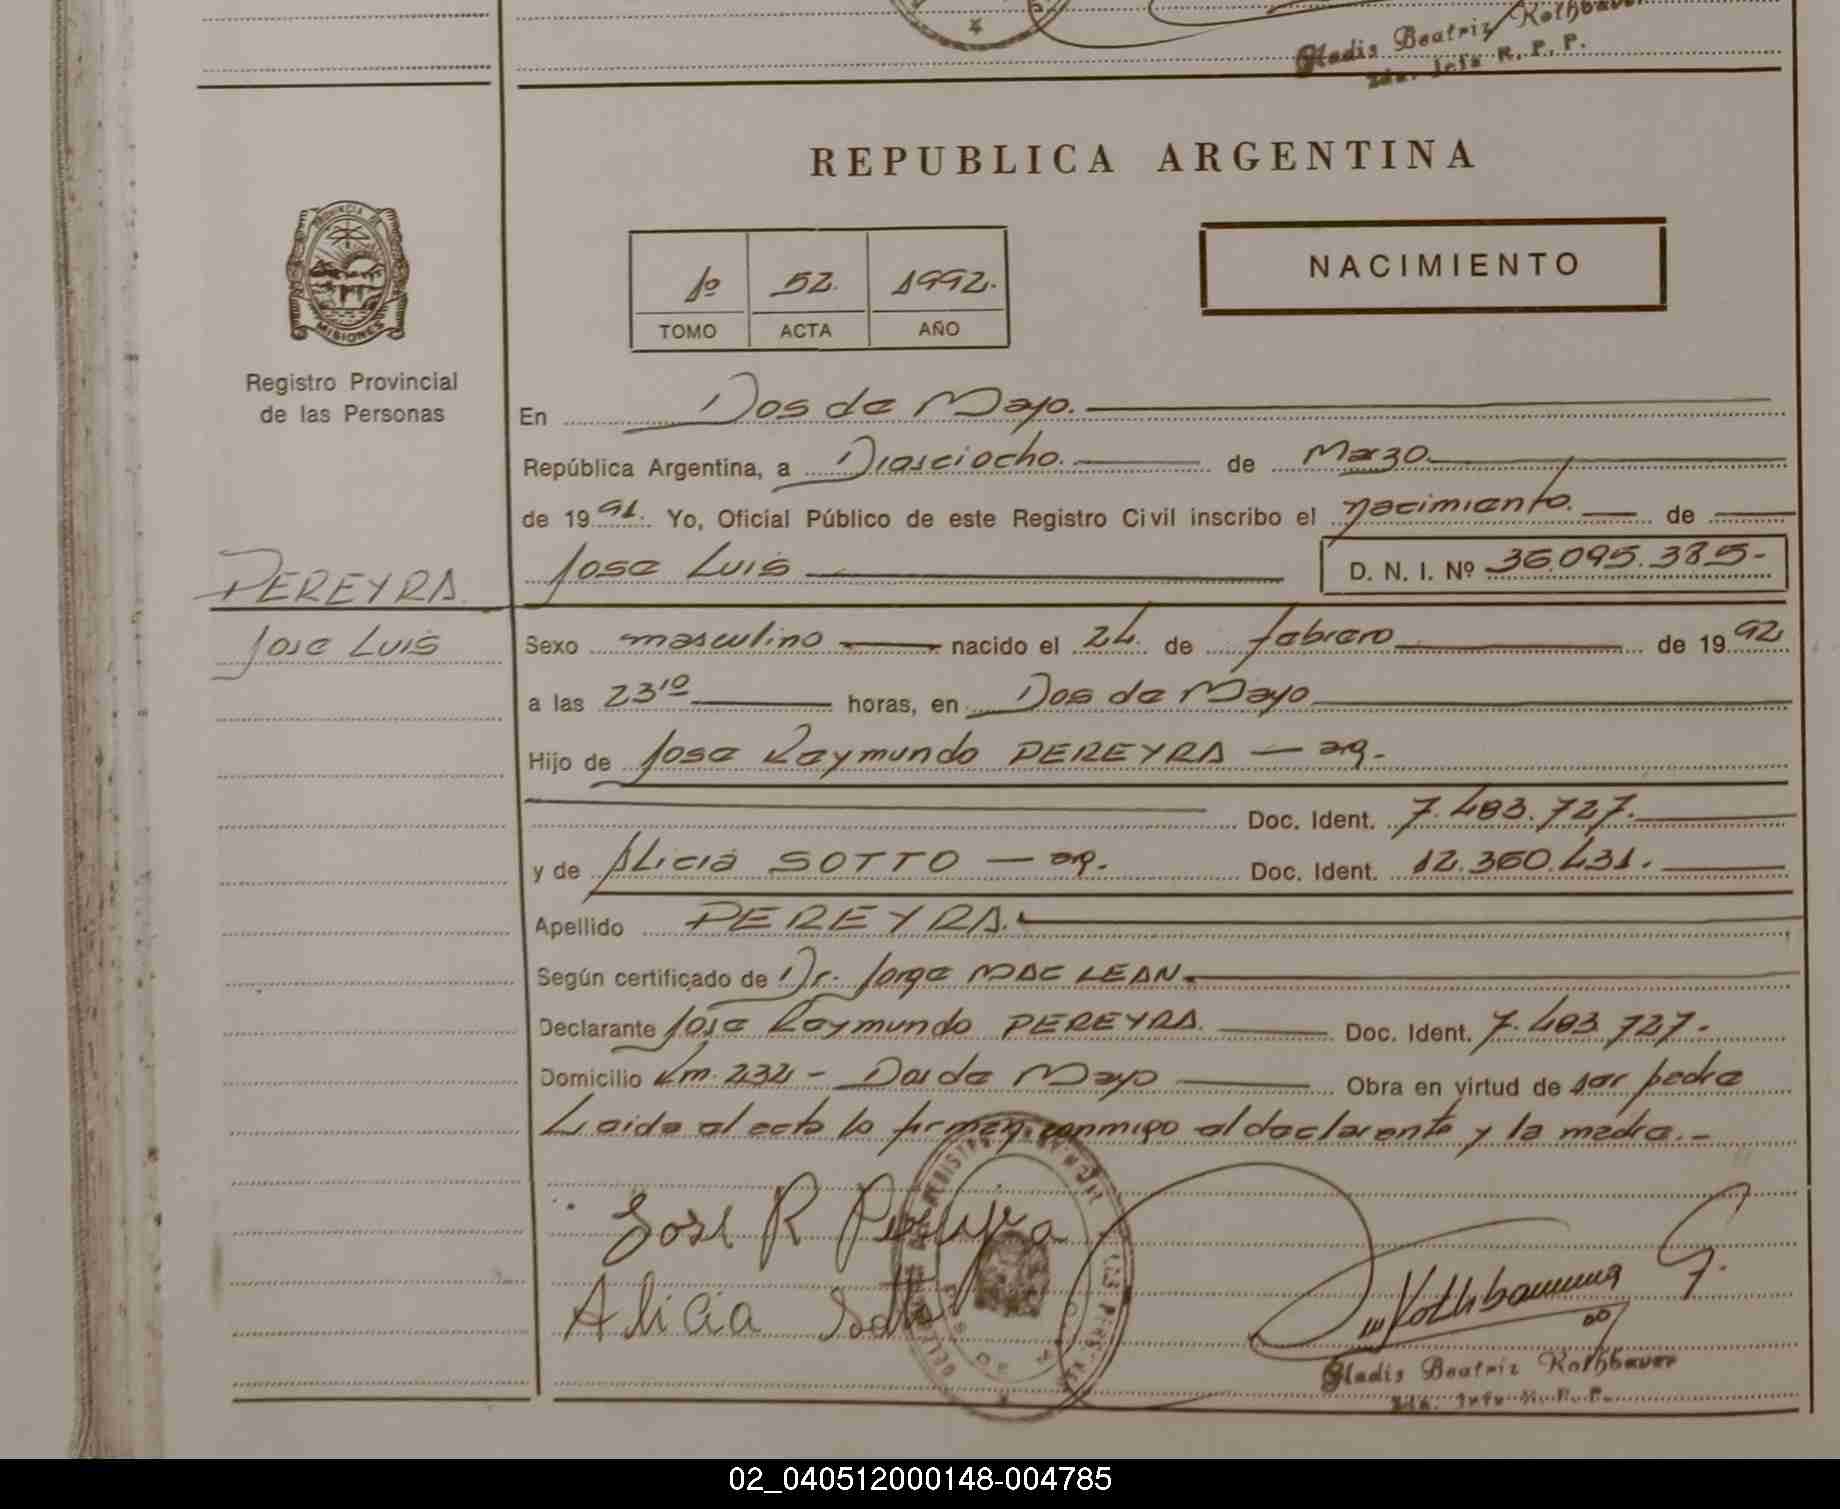 Gladis Beatriz Rothbauer
2da. Jefe R. P. P.
REPUBLICA ARGENTINA
PROVINCIA DE
MISIONES
1º 52. 1992.
TOMO ACTA AÑO
NACIMIENTO
Registro Provincial
de las Personas
En Dos de Mayo.
República Argentina, a Diesciocho. de Marzo
de 19 91. Yo, Oficial Público de este Registro Civil inscribo el nacimiento. de
PEREYRA
Jose Luis D. N. I. Nº 36.095.385-
Jose Luis
Sexo masculino nacido el 24. de febrero de 19 92
a las 23¹⁰ horas, en Dos de Mayo
Hijo de Jose Raymundo PEREYRA — arg.
Doc. Ident. 7.483.727.
y de Alicia SOTTO — arg. Doc. Ident. 12.360.431.
Apellido PEREYRA.
Según certificado de Dr. Jorge MAC LEAN.
Declarante Jose Raymundo PEREYRA. Doc. Ident. 7.483.727.
Domicilio Km. 232 - Dos de Mayo Obra en virtud de ser padre
Leida el acta la firman conmigo el declarante y la madre.-
Jose R Pereyra
Alicia Sotto
Rothbauer G.
Gladis Beatriz Rothbauer
2da. Jefe R. P. P.
02_040512000148-004785